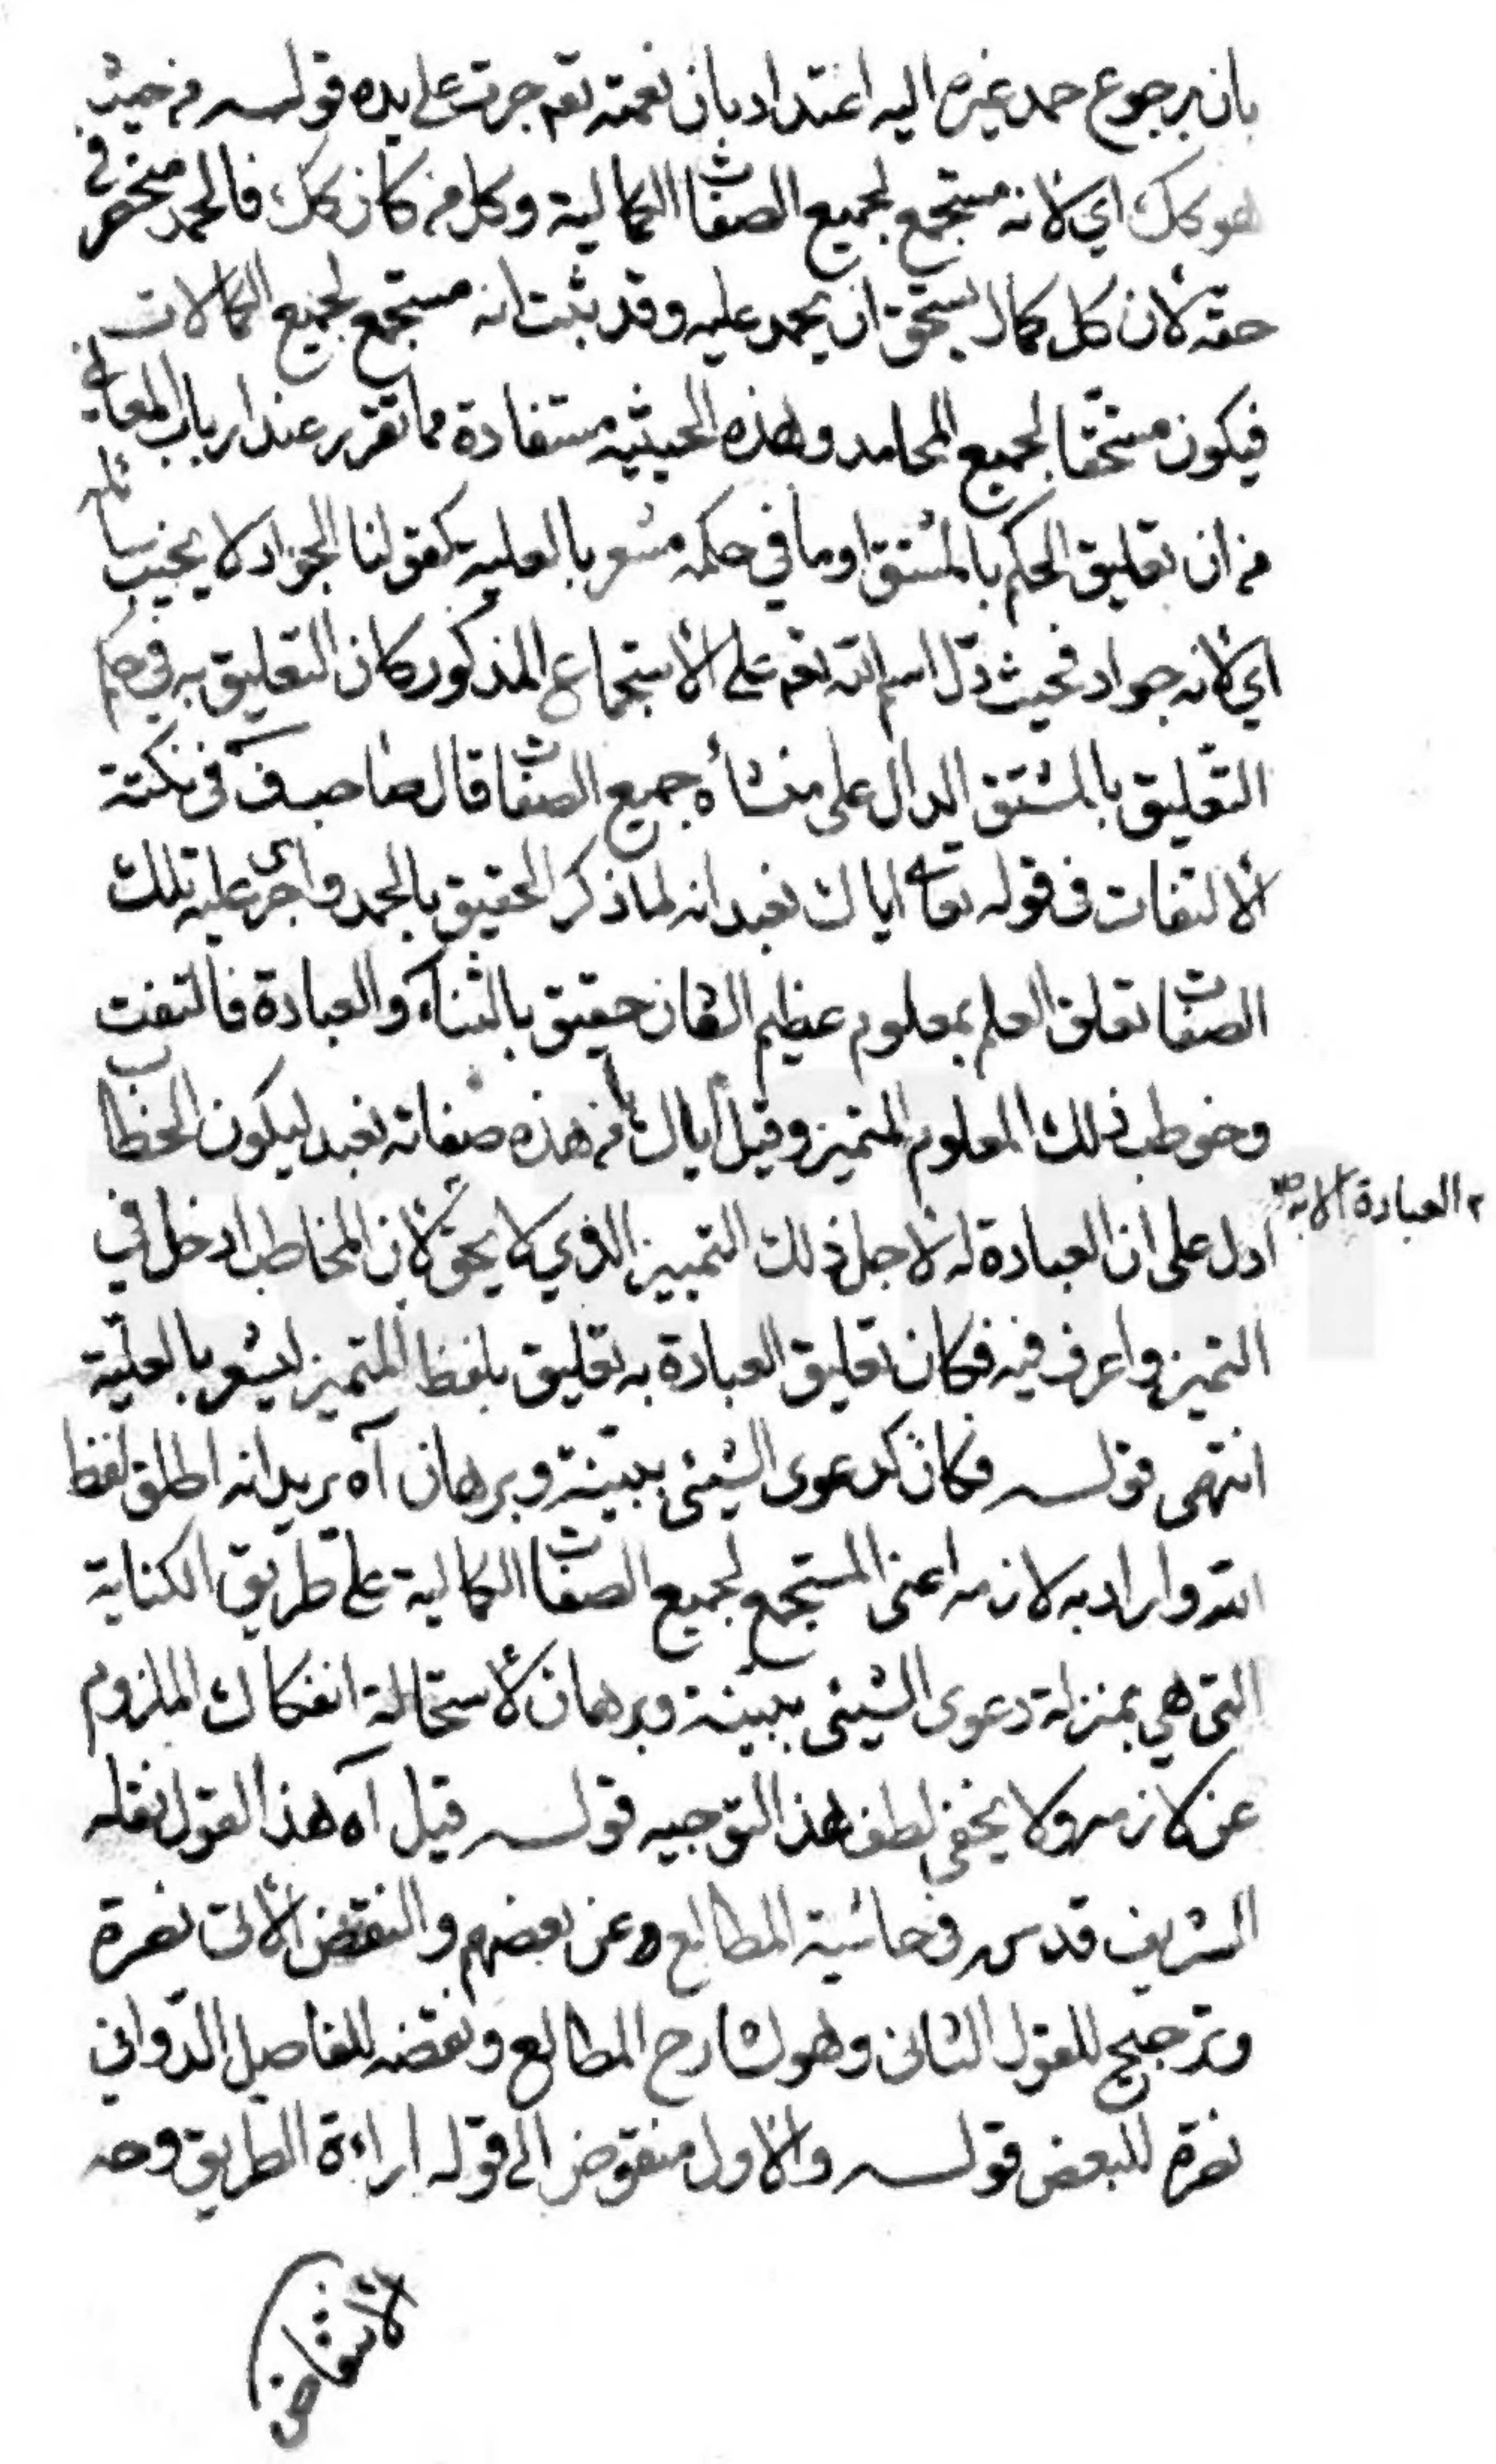 بان برجوع حمد غيره اليه اعتداد بان نعمته تعم جرت على يده قولـــه من حيث
هو كك اي لانه مستجمع لجميع الصفات الكمالية وكل من كان كك فالحمد منحصر في
حقه لان كل كمال يستحق ان يحمد عليه وقد ثبت انه مستجمع لجميع الكمالات
فيكون مستحقا لجميع المحامد وهذه الحيثية مستفادة مما تقرر عند ارباب المعاني
من ان تعليق الحكم بالمشتق او ما في حكمه مشعر بالعلية كقولنا الجواد لا يخيب سائله
اي لانه جواد فحيث دل اسم الله تعم على الاستجماع المذكور كان التعليق به في حكم
التعليق بالمشتق الدال على منشأه جميع الصفات قال صاحب ف في نكتة
الالتفات في قوله تعالى اياك نعبد انه لما ذكر الحقيق بالحمد واجرى عليه تلك
الصفات تعلق العلم بمعلوم عظيم الشان حقيق بالثناء والعبادة فالتفت
وخوطب ذلك المعلوم المتميز وقيل اياك يا من هذه صفاته نعبد ليكون الخطاب
ادل على ان العبادة له لاجل ذلك التمييز الذي لا يحق لان المخاطب ادخل في
العبادة الا به صح
التميز واعرف فيه فكان تعليق العبادة به تعليق بلفظ المتميز ليشعر بالعلية
انتهى قولـــه فكان كدعوى الشيئ ببينة وبرهان آه يريد انه اطلق لفظ
الله واراد به لازمه اعنى المستجمع لجميع الصفات الكمالية على طريق الكناية
التى هي بمنزلة دعوى الشيئ ببينة وبرهان لاستحالة انفكاك الملزوم
عن لازمه ولا يخفى لطف هذا التوجيه قولـــه قيل آه هذا القول نقله
الشريف قدس في حاشية المطالع عن بعضهم والنقض الاتى نصرة
وترجيح للقول الثانى وهو لشارح المطالع ونقضه للفاضل الدّوانى
نصرة للبعض قولـــه والاول منقوض الى قوله اراءة الطريق وجه
الانتقاض